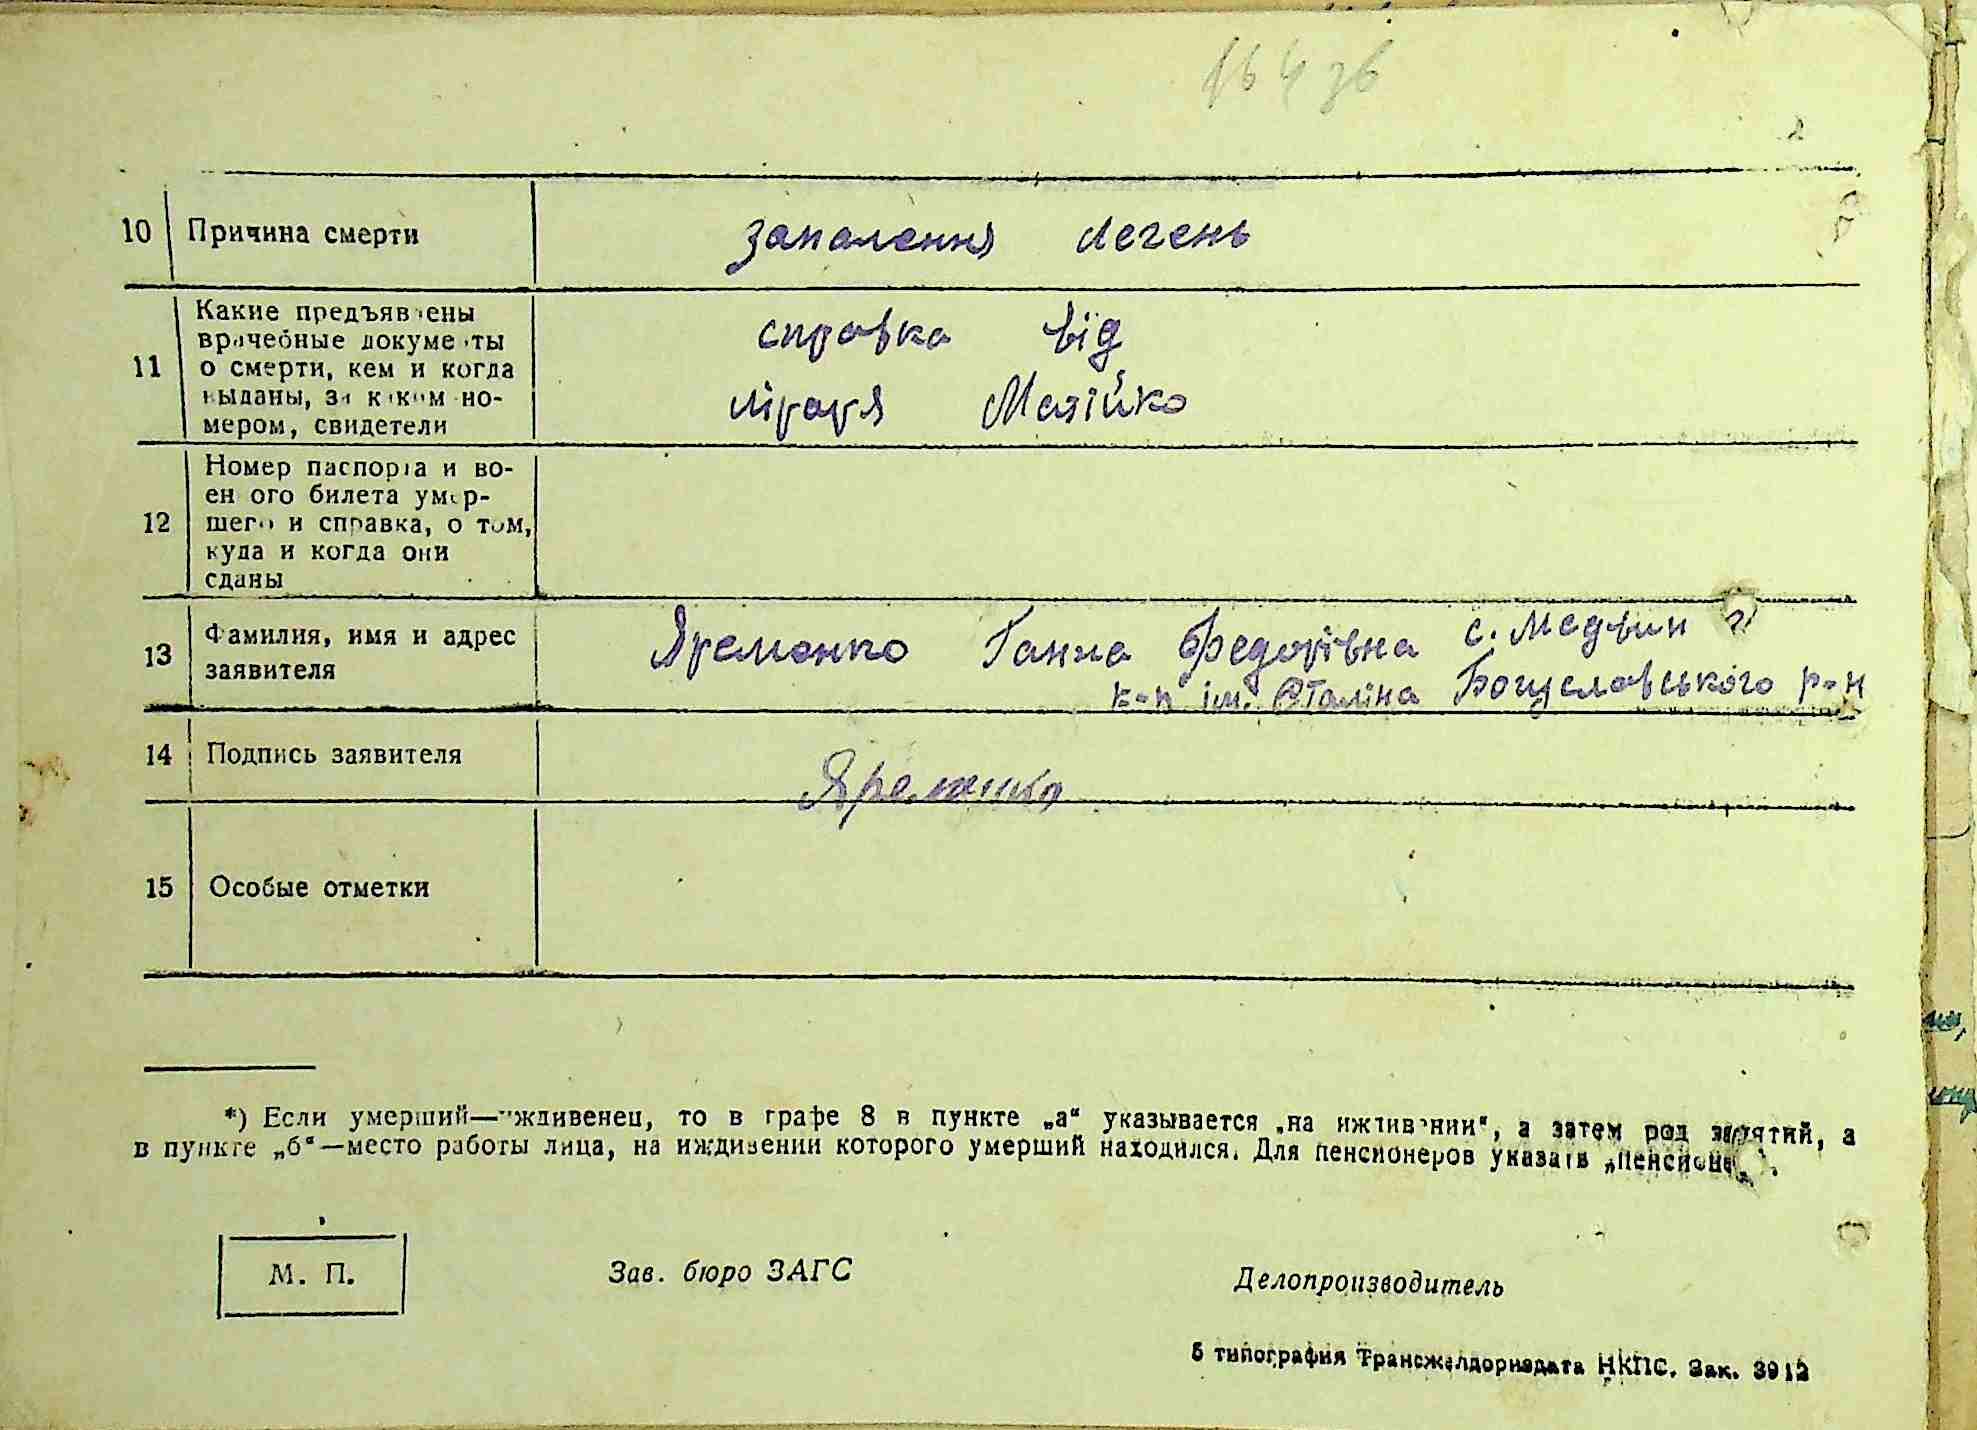 10 Причина смерти запалення легень
11 Какие предъявлены
врачебные документы
о смерти, кем и когда
выданы, за каким но-
мером, свидетели
справка від
лікаря Матійко
12 Номер паспорта и во-
енного билета умер-
шего и справка, о том,
куда и когда они
сданы
13 Фамилия, имя и адрес
заявителя
Яременко Ганна Федорівна с. Медвин
к-п ім. Сталіна Богуславського р-н
14 Подпись заявителя Яременко
15 Особые отметки
*) Если умерший—иждивенец, то в графе 8 в пункте „а“ указывается „на иждивении“, а затем род занятий, а
в пункте „б“—место работы лица, на иждивении которого умерший находился. Для пенсионеров указать
М. П. Зав. бюро ЗАГС Делопроизводитель
5 типография Трансжелдориздата НКПС. Зак. 3912